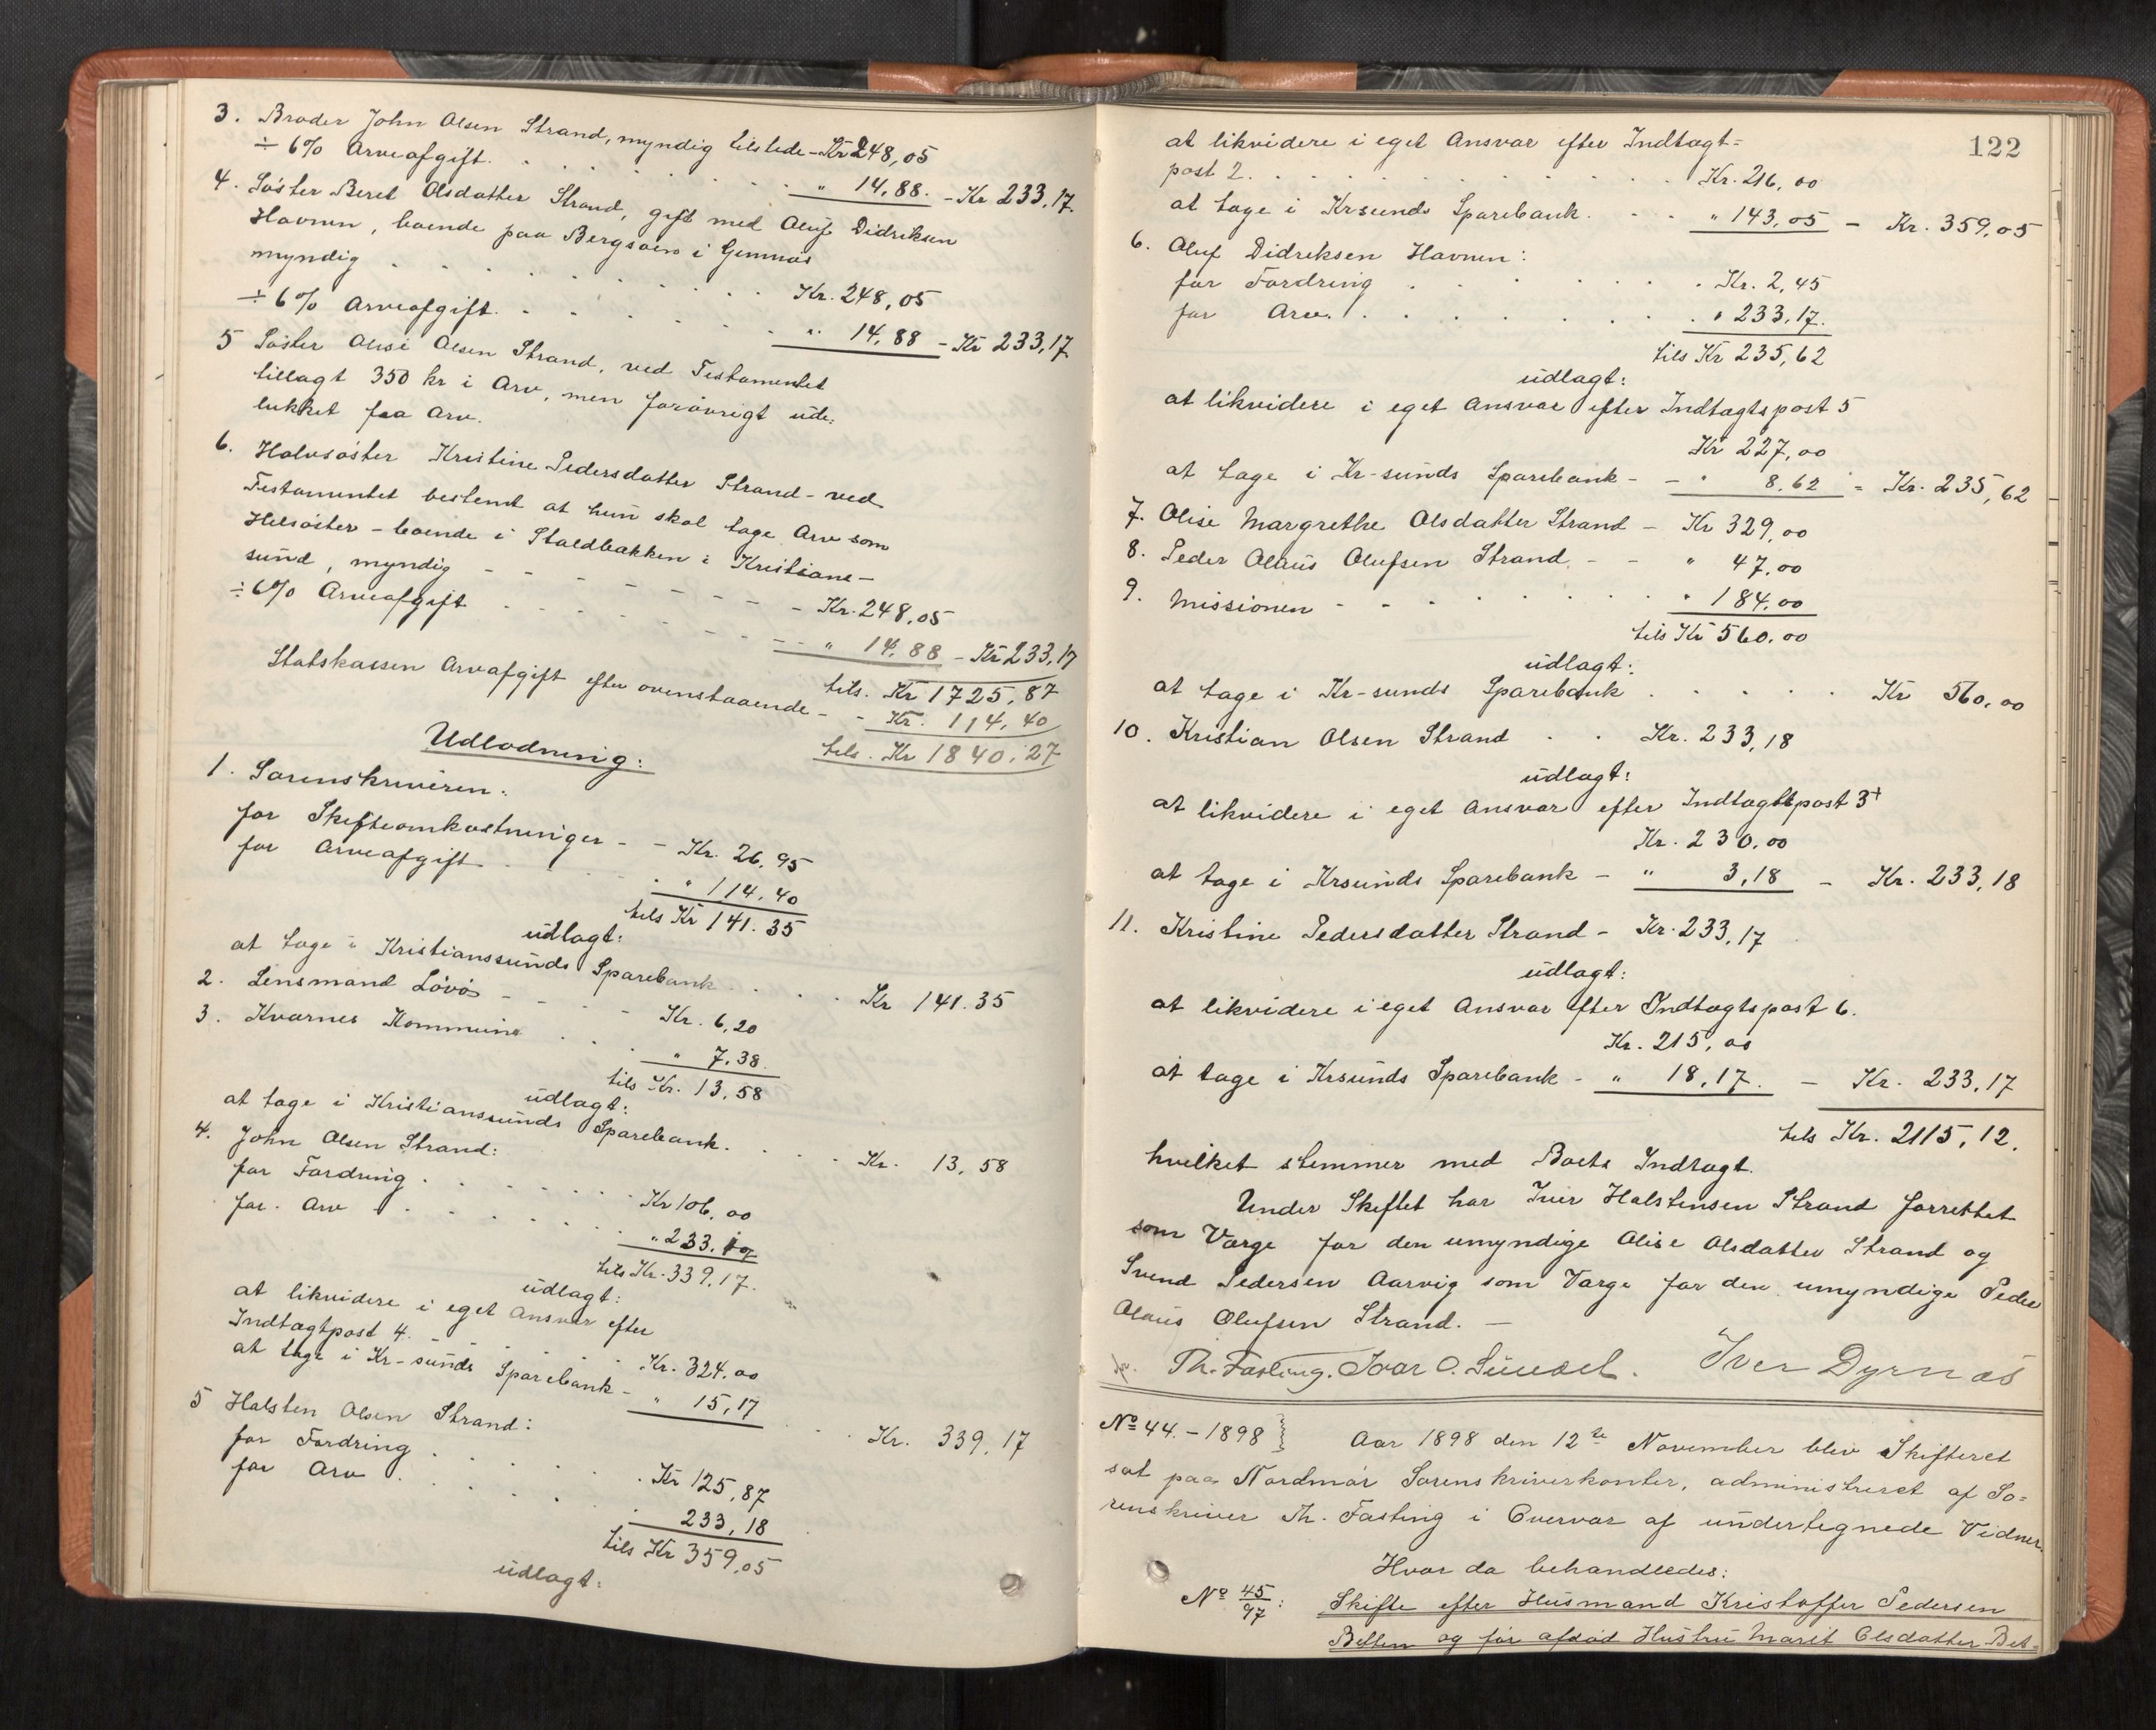 3. Broder John Olsen Strand, myndig tilstede - Kr 248,05
÷ 6% Arveafgift. . . . . . . . " 14,88. - Kr 233,17.
4. Søster Beret Olsdatter Strand, gift med Oluf Didriksen
Havnen, boende paa Bergsøen i Gimnæs
myndig . . . . . . . . Kr. 248,05
÷ 6% Arveafgift. . . . . . . " 14,88 - Kr 233,17
5 Søster Olise Olsen Strand, ved Testamentet
tillagt 350 kr i Arv, men forøvrigt ude-
lukket fra Arv.
6. Halvsøster Kristine Pedersdatter Strand - ved
Testamentet bestemt at hun skal tage Arv som
Helsøster - boende i Staldbakken i Kristians-
sund, myndig - - - - - - - Kr. 248,05
÷ 6% Arveafgift . . . . . . . " 14,88 - Kr 233,17
tils. Kr 1725,87
Statskassen Arvafgift efter ovenstaaende - - Kr. 114,40
tils. Kr 1840,27
Udlodning:
1. Sorenskriveren:
for Skifteomkostninger - - Kr. 26,95
for Arveafgift . . . " 114,40
tils Kr 141.35
udlagt:
at tage i Kristianssunds Sparebank . . . . Kr 141.35
2. Lensmand Løvøs - - - - Kr. 6,20
3. Kvernes Kommune . . . " 7.38
tils Kr. 13,58
udlagt:
at tage i Kristianssunds Sparebank. . . . . Kr. 13,58
4. John Olsen Strand:
for Fordring . . . . . . . Kr 106,00
for Arv . . . . . . . " 233.17
tils Kr. 339,17.
udlagt:
at likvidere i eget Ansvar efter
Indtægtpost 4. - - . . . Kr. 324.00
at tage i Kr-sunds Sparebank - " 15,17 . . Kr. 339.17
5 Halsten Olsen Strand:
for Fordring . . . . . Kr 125,87
for Arv . . . . . . 233,18
tils Kr 359,05
udlagt:
122
at likvidere i eget Ansvar efter Indtægt-
post 2. . . . . . . . . . . Kr. 216,00
at tage i Krsunds Sparebank. . . " 143,05 - Kr. 359,05
6. Oluf Didriksen Havnen:
for Fordring . . . . . . . Kr. 2,45
for Arv. . . . . . . . . " 233,17.
tils Kr 235,62
udlagt:
at likvidere i eget Ansvar efter Indtægtspost 5
Kr 227,00
at tage i Kr-sunds Sparebank - - " 8,62 = Kr. 235,62
7. Olise Margrethe Olsdatter Strand - Kr 329,00
8. Peder Olaus Olufsen Strand - - " 47,00
9. Missionen - - - - - - - " 184,00
tils Kr 560,00
udlagt:
at tage i Kr-sunds Sparebank . . . . . Kr 560,00
10. Kristian Olsen Strand . . Kr. 233,18
udlagt:
at likvidere i eget Ansvar efter Indtægtspost 3
Kr. 230.00
at tage i Krsunds Sparebank - " 3,18 - Kr. 233,18
11. Kristine Pedersdatter Strand - Kr. 233,17
udlagt:
at likvidere i eget Ansvar efter Indtægtspost 6.
Kr. 215,00
at tage i Krsunds Sparebank - " 18,17. - Kr. 233,17
tils Kr. 2115,12.
hvilket stemmer med Boets Indtægt.
Under Skiftet har Iver Halstensen Strand forrettet
som Værge for den umyndige Olise Olsdatter Strand og
Svend Pedersen Aarvig som Værge for den umyndige Peder
Olaus Olufsen Strand. -
Th. Fasting. Ivar O. Iver Dyrnæs
No 44. - 1898 } Aar 1898 den 12te November blev Skifteret
sat paa Nordmør Sorenskriverkontor, administreret af So-
renskriver Th. Fasting i Overvær af undertegnede Vidner.
Hvor da behandledes:
No 45/97: Skifte efter Husmand Kristoffer Pedersen
Betten og før afdød Hustru Marit Olsdatter Bet-